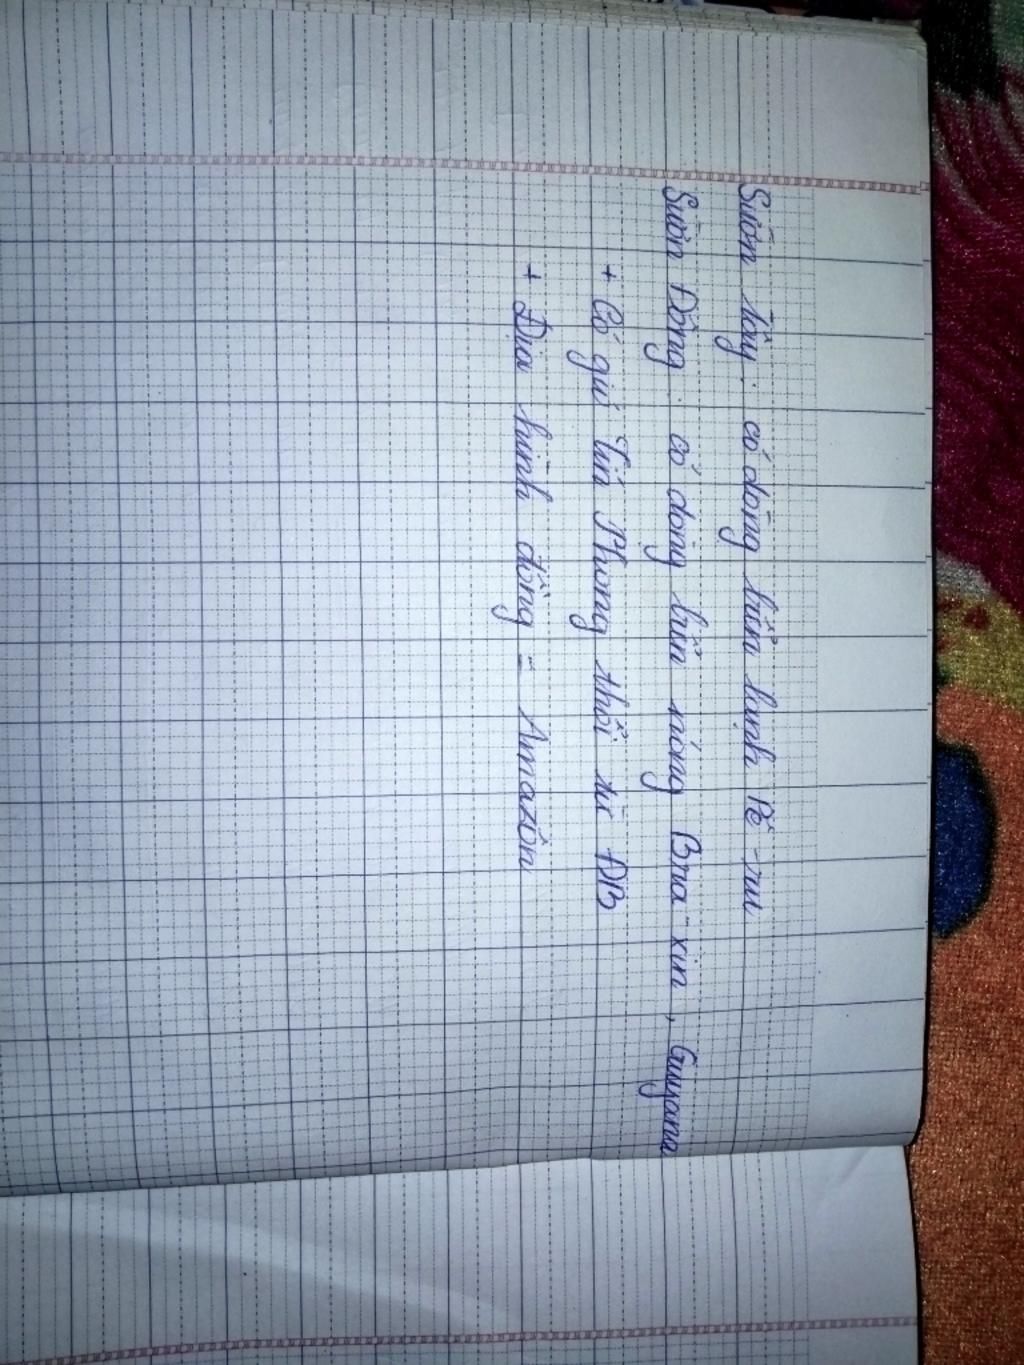 Sườn tây: có dòng biển lạnh Pê-ru
Sườn Đông: có dòng biển nóng Bra-xin, Guyana
+ Có gió Tín Phong thổi từ ĐB
+ Địa hình đồng = Amazôn